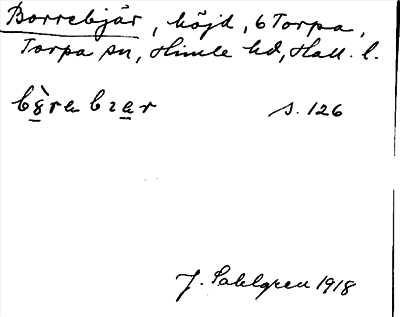 Borrebjär, höjd, 6 Torpa,
Torpa sn, Himle hd, Hall. l.
bòrabıar s. 126
J. Sahlgren 1918